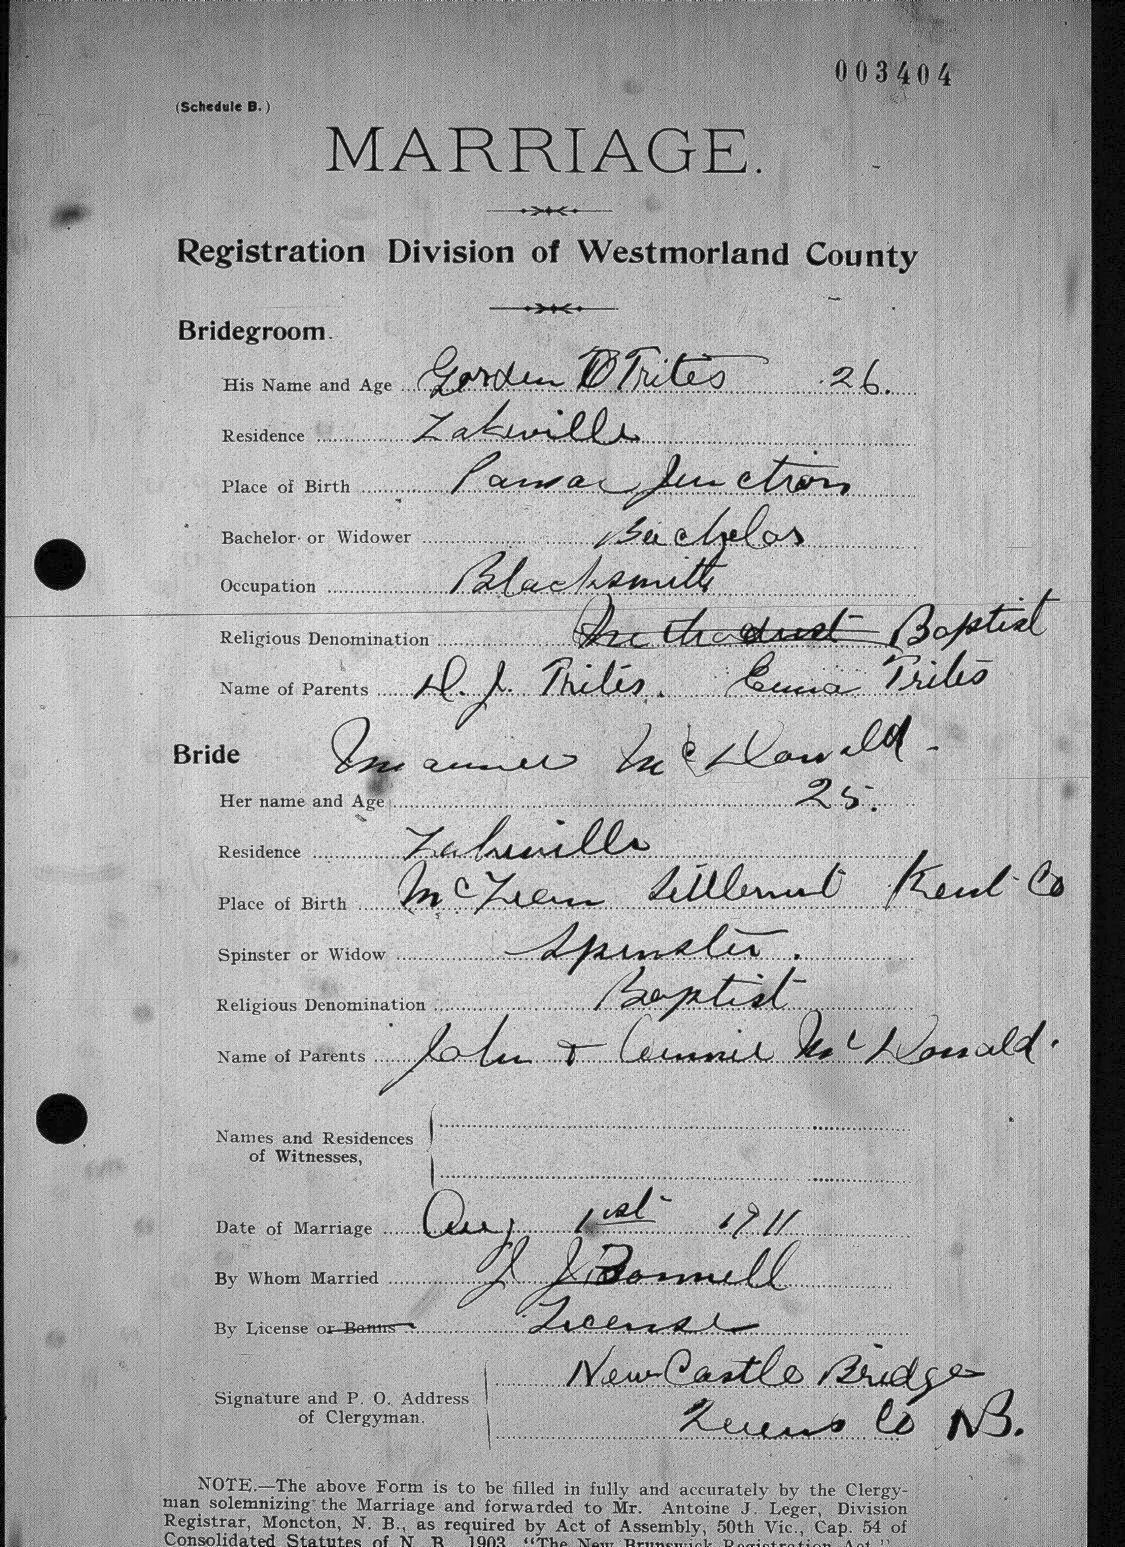 003404
(Schedule B.)
MARRIAGE.
Registration Division of Westmorland County
Bridegroom.
His Name and Age Gorden B Trites 26.
Residence Lakeville
Place of Birth Pamsac Junction
Bachelor or Widower Bachelor
Occupation Blacksmith
Religious Denomination Methodist Baptist
Name of Parents D. J. Trites. Emma Trites
Bride McDonald
Her name and Age 25.
Residence Lakeville
Place of Birth McLean Settlement Kent Co
Spinster or Widow Spinster.
Religious Denomination Baptist
Name of Parents John & Annie McDonald.
Names and Residences
of Witnesses,
Date of Marriage Aug 1st 1911
By Whom Married J J Bonnell
By License or Banns License
New Castle Bridge
Signature and P. O. Address
of Clergyman.
Queens Co NB.
NOTE.—The above Form is to be filled in fully and accurately by the Clergy-
man solemnizing the Marriage and forwarded to Mr. Antoine J. Leger, Division
Registrar, Moncton, N. B., as required by Act of Assembly, 50th Vic., Cap. 54 of
Consolidated Statutes of N. B. 1903, "The New Brunswick Registration Act."